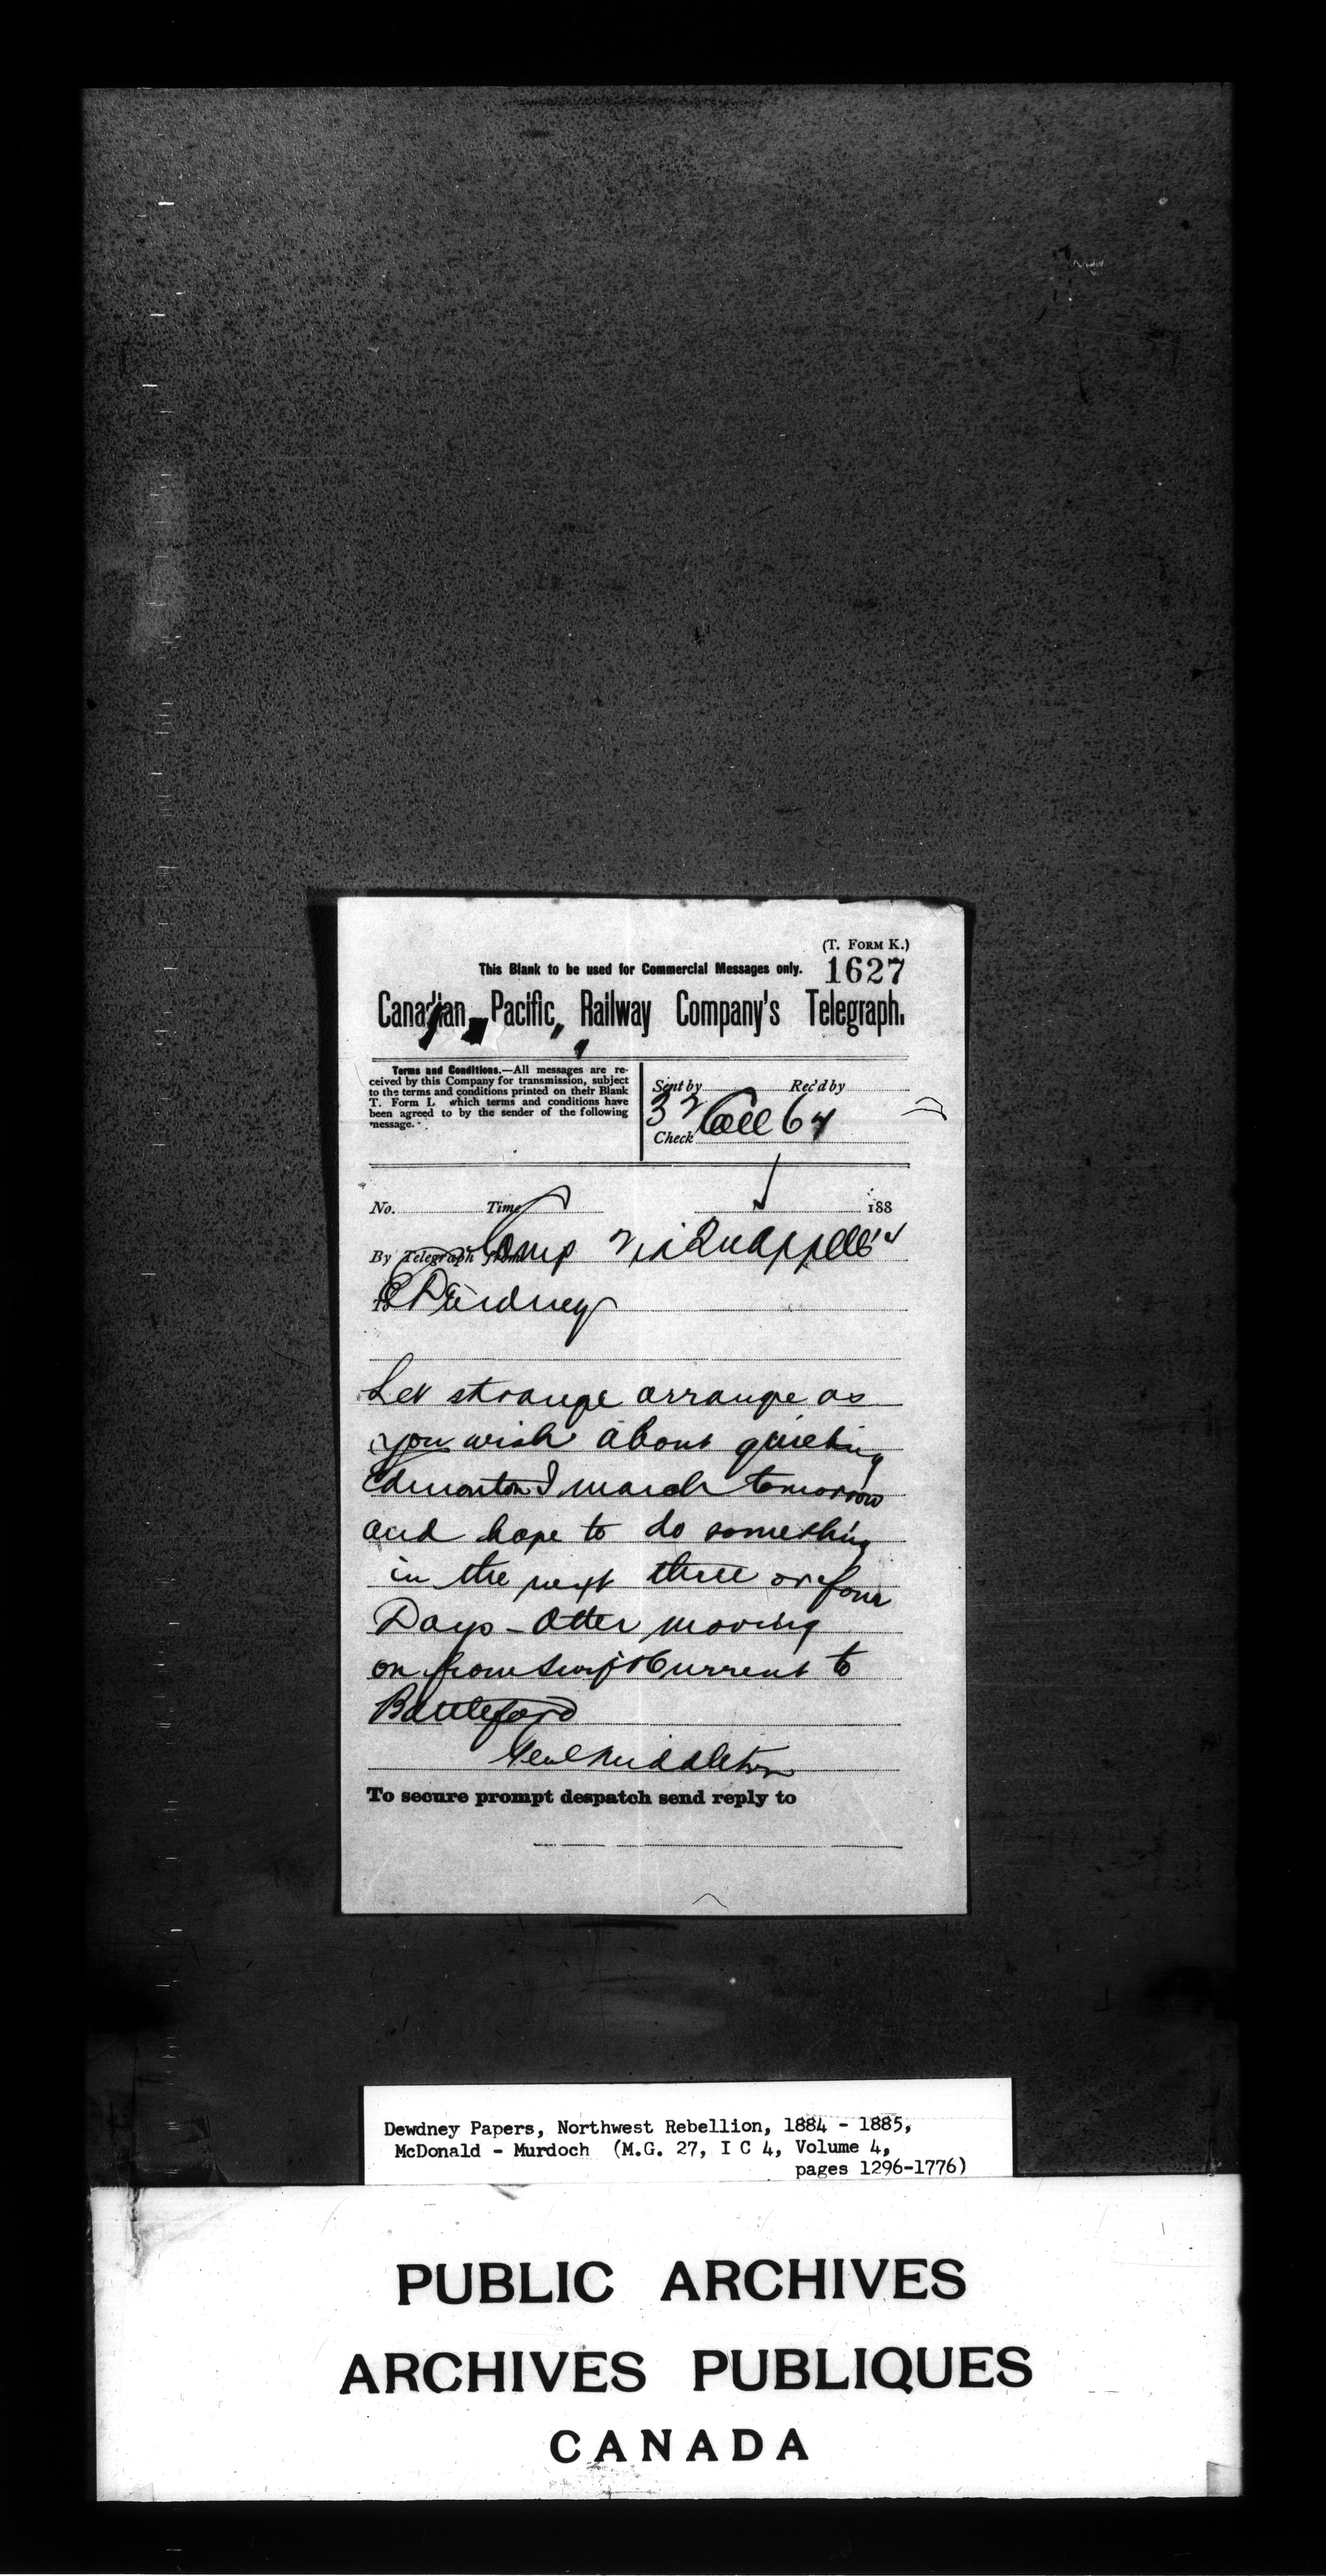 (T. FORM K.)
This Blank to be used for Commercial Messages only.
1627
Canadian Pacific Railway Company's Telegraph.
Terms and Conditions.—All messages are re-
ceived by this Company for transmission, subject
to the terms and conditions printed on their Blank
T. Form I. which terms and conditions have
been agreed to by the sender of the following
message.
Sent by Rec'd by
32 Coll 64
Check
No. Time 188
By Telegraph from Camp Via Quappelle
To E Dewdney
Let strange arrange as
you wish about quieting
Edmonton I march tomorrow
and hope to do something
in the next three or four
Days - Otter moving
on from Swift Current to
Battleford
Genl Middleton
To secure prompt despatch send reply to
Dewdney Papers, Northwest Rebellion, 1884 - 1885,
McDonald - Murdoch (M.G. 27, I C 4, Volume 4,
pages 1296-1776)
PUBLIC ARCHIVES
ARCHIVES PUBLIQUES
CANADA